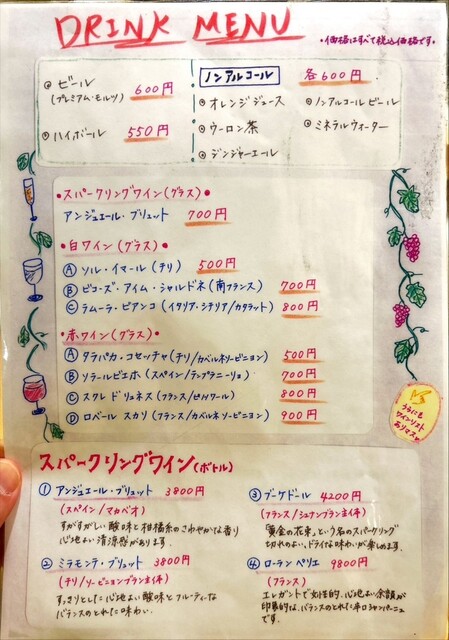 DRINK MENU
・価格はすべて税込価格です。
ビール 600円
(プレミアム・モルツ)
ハイボール 550円
ノンアルコール 各600円
オレンジジュース
ノンアルコールビール
ウーロン茶
ミネラルウォーター
ジンジャーエール
・スパークリングワイン(グラス)・
アンジュエール・ブリュット 700円
・白ワイン(グラス)・
Ⓐ ソル・イマール(チリ) 500円
Ⓑ ビコーズ・アイム・シャルドネ(南フランス) 700円
Ⓒ テムーラ・ビアンコ(イタリア・シチリア/カタラット) 800円
・赤ワイン(グラス)・
Ⓐ タラパカ・コセッチャ(チリ/カベルネソービニョン) 500円
Ⓑ ソラールビエホ(スペイン/テンプラニーリョ) 700円
Ⓒ スクレドリュネス(フランス/ピノノワール) 800円
Ⓓ ロベール スカリ(フランス/カベルネソービニョン) 900円
うらにも
ワインリスト
ありマス♪
スパークリングワイン(ボトル)
① アンジュエール・ブリュット 3800円
(スペイン/マカベオ)
すがすがしい酸味と柑橘系のさわやかな香り
心地よい清涼感があります。
② ミラモンテ・ブリュット 3800円
(チリ/ソービニョンブラン主体)
すっきりとした心地よい酸味とフルーティな
バランスのとれた味わい.
③ ブーケドール 4200円
(フランス/シュナンブラン主体)
"黄金の花束"という名のスパークリング
切れのよい、ドライな味わいが楽しめます.
④ ローラン ペリエ 9800円
(フランス)
エレガントで女性的.心地よい余韻が
印象的な、バランスのとれた辛口シャンパーニュ
です.